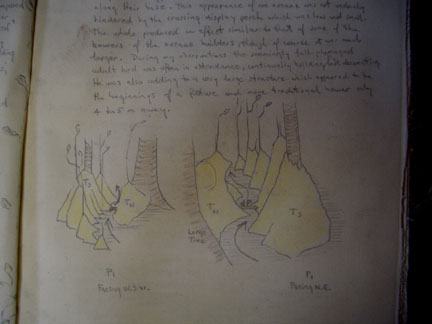 along their base. This appearance of an avenue was not unduly
hindered by the crossing display perch which was low and small.
The whole produced an effect similar to that of some of the
bowers of the avenue builders, though of course it was much
larger. During my observations the seemingly full-plumaged
adult bird was often in attendance, continuously
He was also adding to a very large structure which appeared to be
the beginnings of a future and more traditional bower only
4 to 5 m away.
Ts
TM
TM
DP
Ts
Large
Tree
P1
Facing W.S.W.
P2
Facing N.E.